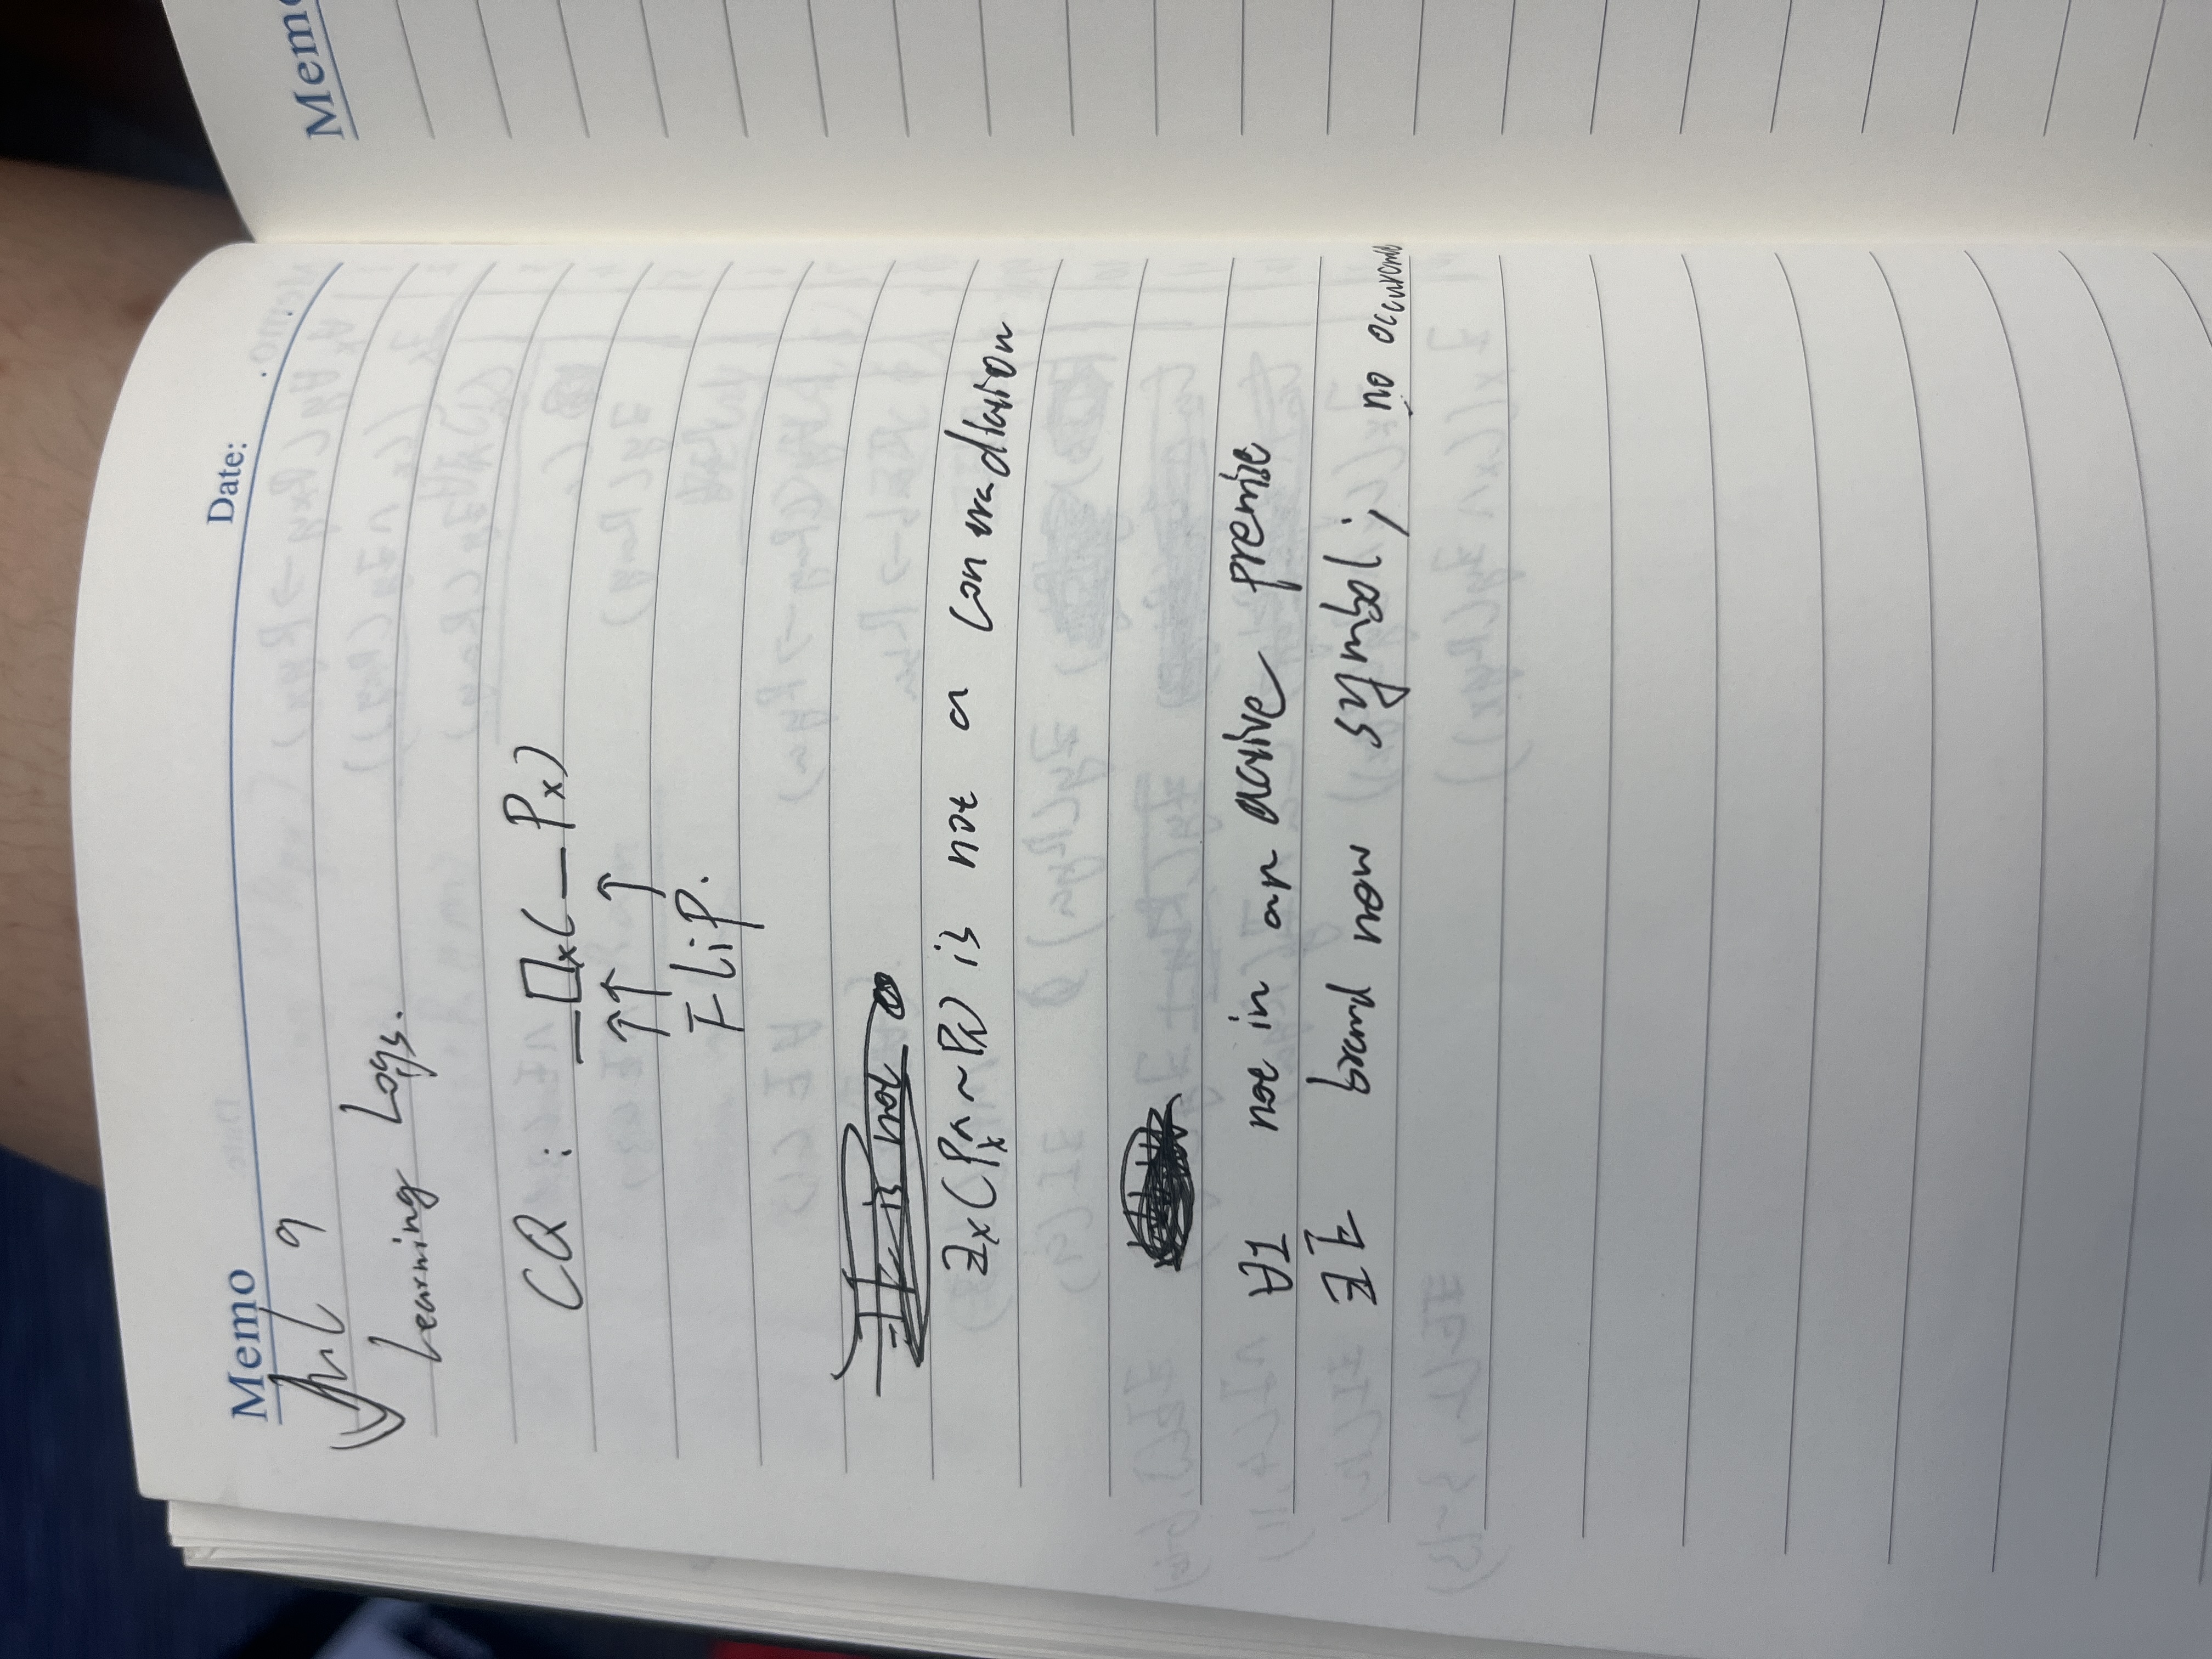 Memo Date:
Jul 9
Learning Logs.
CQ : _□x(_Px)
↑↑ ↑
FliP.
It is not
∃x(Px∧~Px) is not a contradiction
∀I not in an active premise
∃E brand new symbol; no occurance
Memo